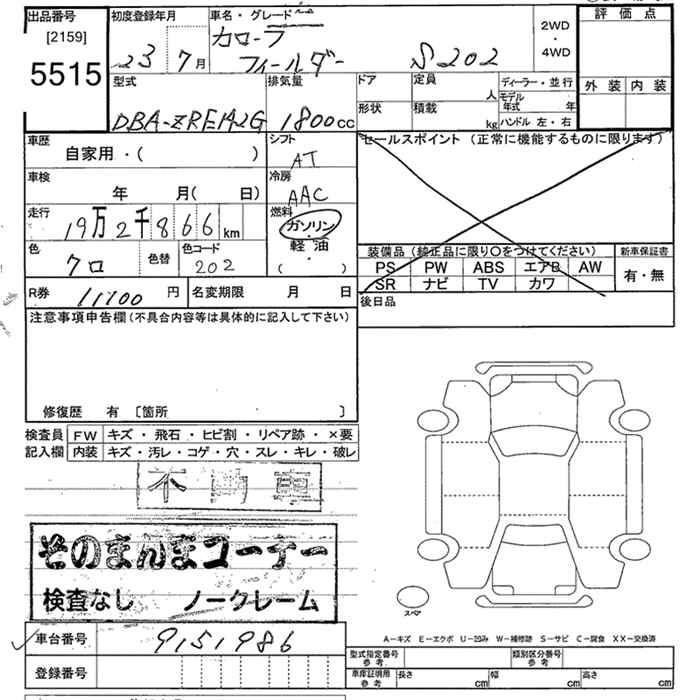 出品番号 初度登録年月 車名・グレード 評価点
[2159] カローラ 2WD
5515 23 7月 フィールダー S202 ・ 4WD
外装 内装
型式 排気量 ドア 定員 人 ディーラー・並行
モデル年式 年
DBA-ZRE142G 1800cc 形状 積載 kg ハンドル 左・右
車歴 シフト セールスポイント (正常に機能するものに限ります)
自家用・( ) AT
車検 冷房
年 月( 日) AAC
走行 燃料
19万2千866km ガソリン
軽油
( )
装備品 (純正品に限り〇をつけてください) 新車保証書
色 クロ 色替 色コード 202
PS PW ABS エアB AW 有・無
SR ナビ TV カワ
R券 11700円 名変期限 月 日 後日品
注意事項申告欄(不具合内容等は具体的に記入して下さい)
修復歴 有 [箇所 ]
検査員 FW キズ・飛石・ヒビ割・リペア跡・×要
記入欄 内装 キズ・汚レ・コゲ・穴・スレ・キレ・破レ
そのまんまコーナー
検査なし ノークレーム
スペア
車台番号 9151986
A-キズ E-エクボ U-凹み W-補修跡 S-サビ C-腐食 XX-交換済
登録番号
型式指定番号 参考 類別区分番号 参考
車庫証明用 参考 長さ cm 幅 cm 高さ cm